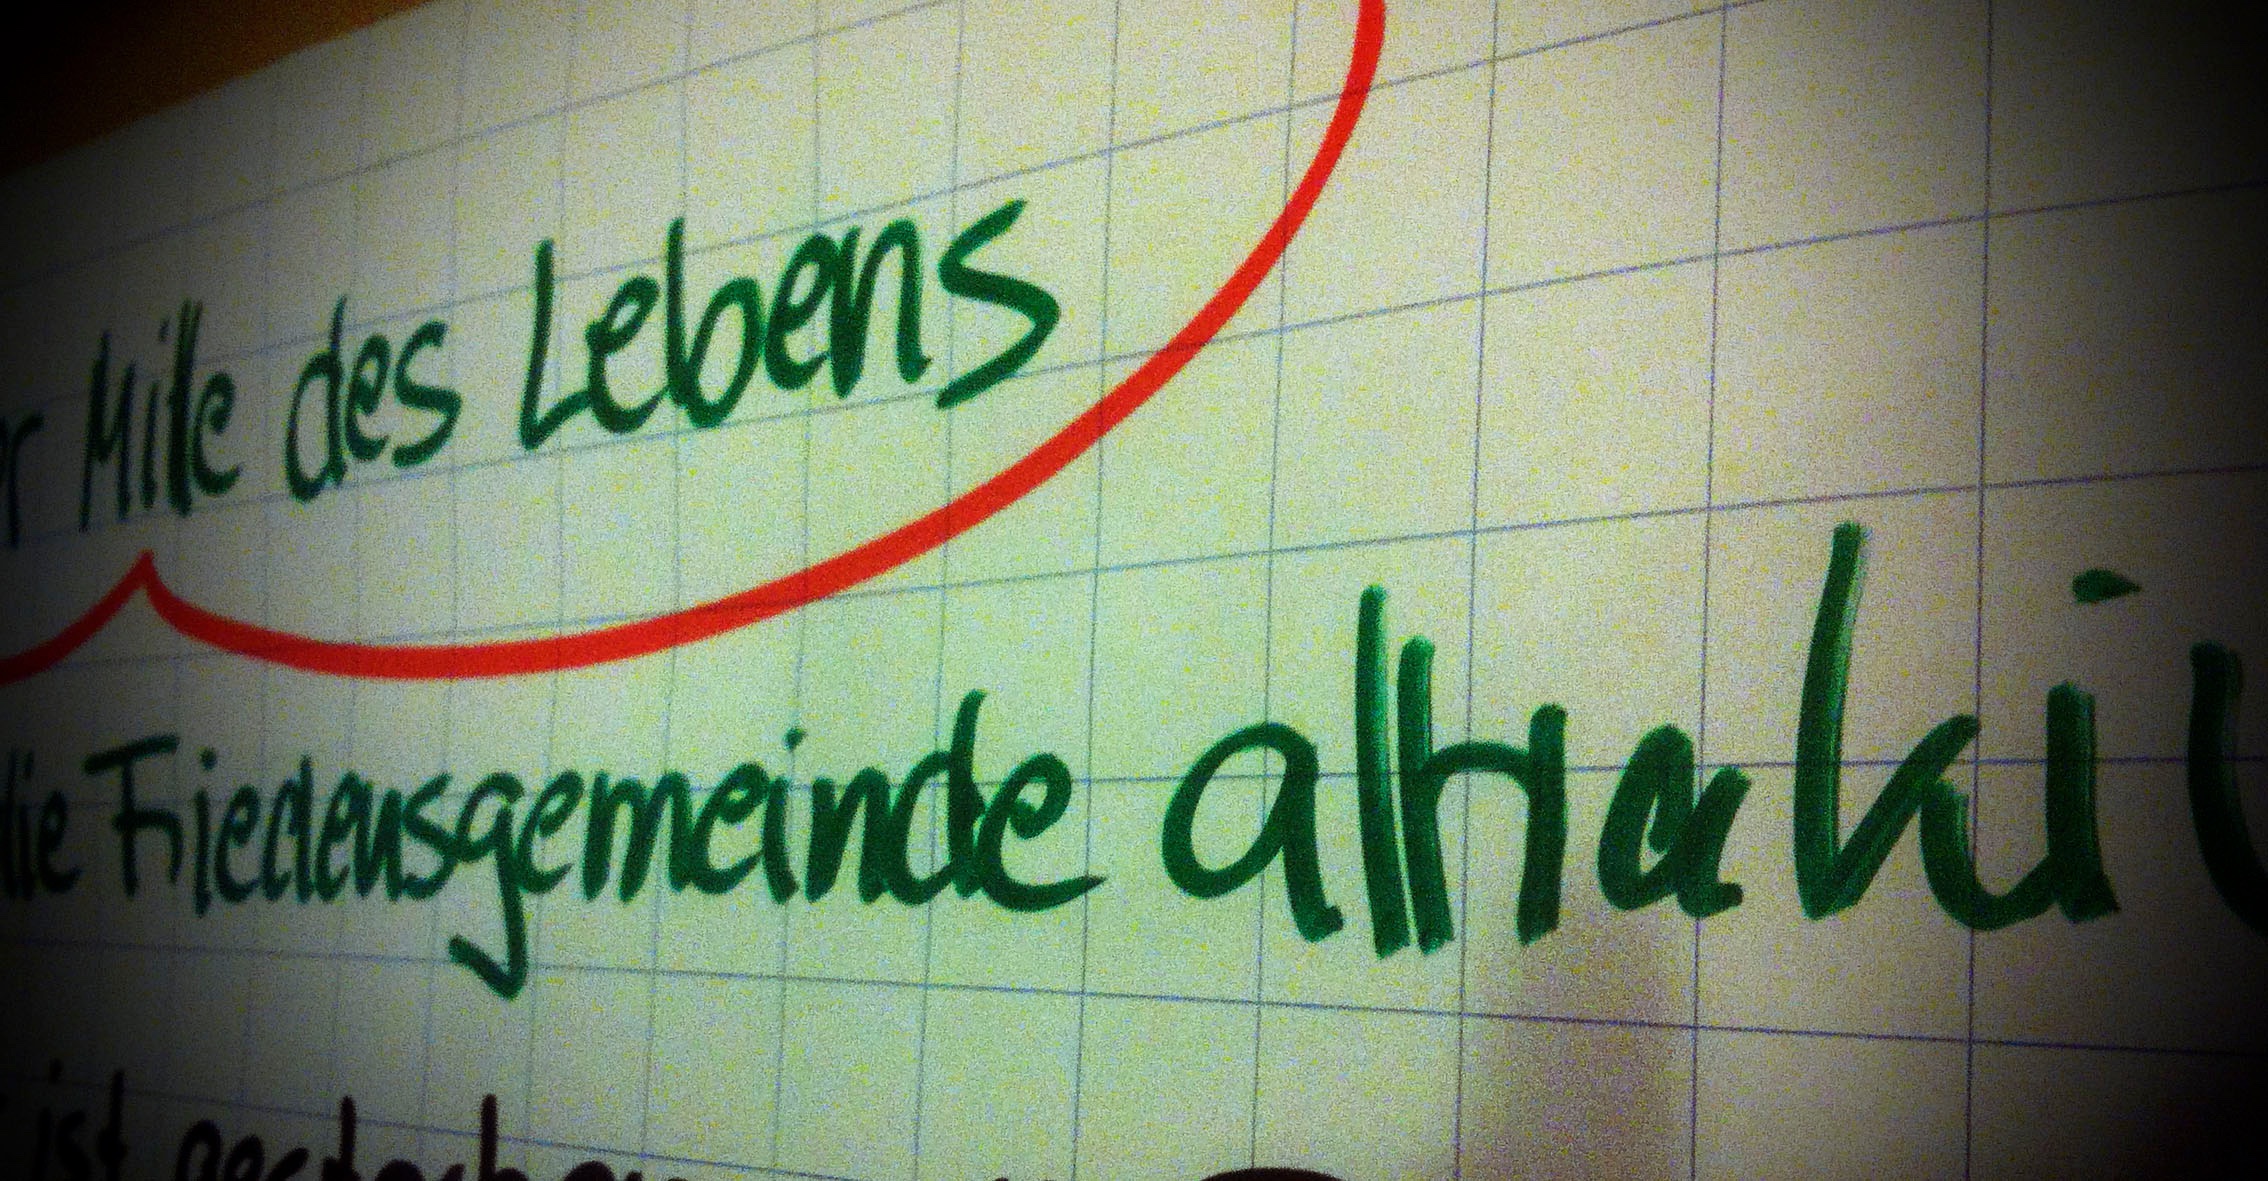 er Mitte des Lebens
die Friedensgemeinde attrakti
ist gestorben